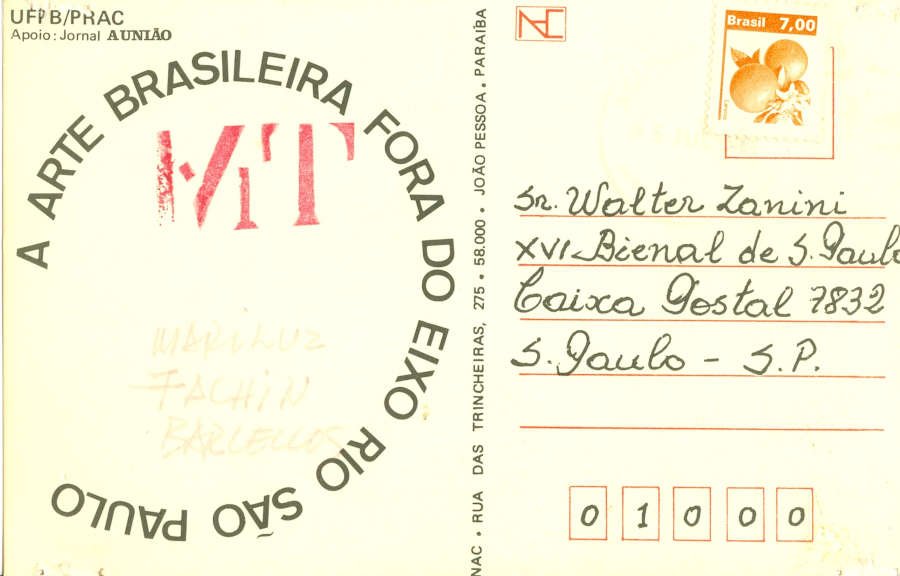 UFPB/PRAC
Apoio: Jornal A UNIÃO
A ARTE BRASILEIRA FORA DO EIXO RIO SÃO PAULO
MT
MARILUZ
FACHIN
BARCELLOS
NAC • RUA DAS TRINCHEIRAS, 275 • 58.000 • JOÃO PESSOA • PARAÍBA
NAC
Brasil 7,00
Sr. Walter Zanini
XVI Bienal de S. Paulo
Caixa Postal 7832
S. Paulo - S.P.
0 1 0 0 0